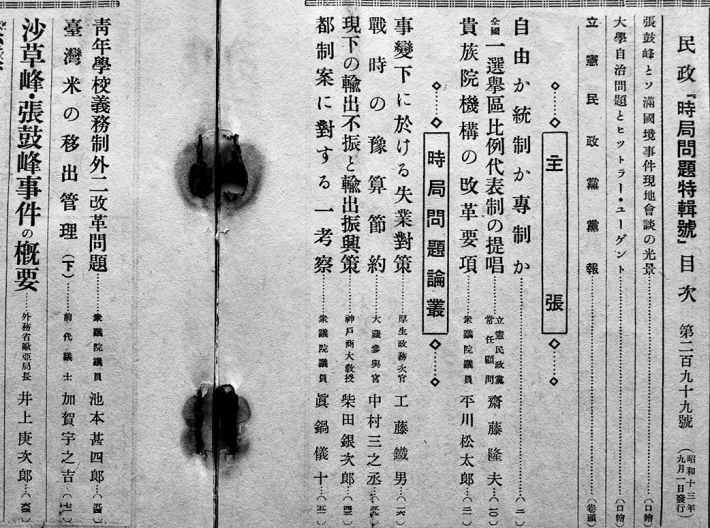 民政『時局問題特輯號』目次 第二百九十九號 (昭和十三年九月一日發行)
張鼓峰とソ滿國境事件現地會談の光景……(口繪)
大學自治問題とヒットラー・ユーゲント……(口繪)
立憲民政黨黨報……(卷頭)
主張
自由か統制か專制か……(二)
全國一選擧區比例代表制の提唱……立憲民政黨常任顧問 齋藤隆夫…(一〇)
貴族院機構の改革要項……衆議院議員 平川松太郎…(二一)
時局問題論叢
事變下に於ける失業對策……厚生政務次官 工藤鐵男…
戰時の豫算節約……大藏參與官 中村三之丞…
現下の輸出不振と輸出振興策……神戸商大敎授 柴田銀次郎…
都制案に對する一考察……衆議院議員 眞鍋儀十…
靑年學校義務制外二改革問題……衆議院議員 池本甚四郎…
臺灣米の移出管理(下)……前代議士 加賀宇之吉…
沙草峰・張鼓峰事件の槪要……外務省歐亞局長 井上庚次郎…